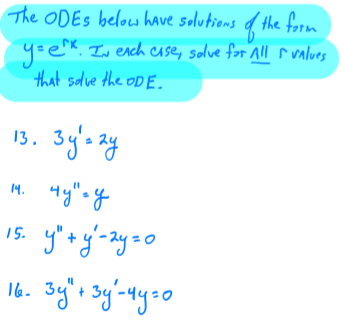 The ODEs below have solutions of the form
y=e^{rx}. In each case, solve for All r values
that solve the ODE.
13. 3y'=2y
14. 4y"=y
15. y"+y'-2y=0
16. 3y"+3y'-4y=0